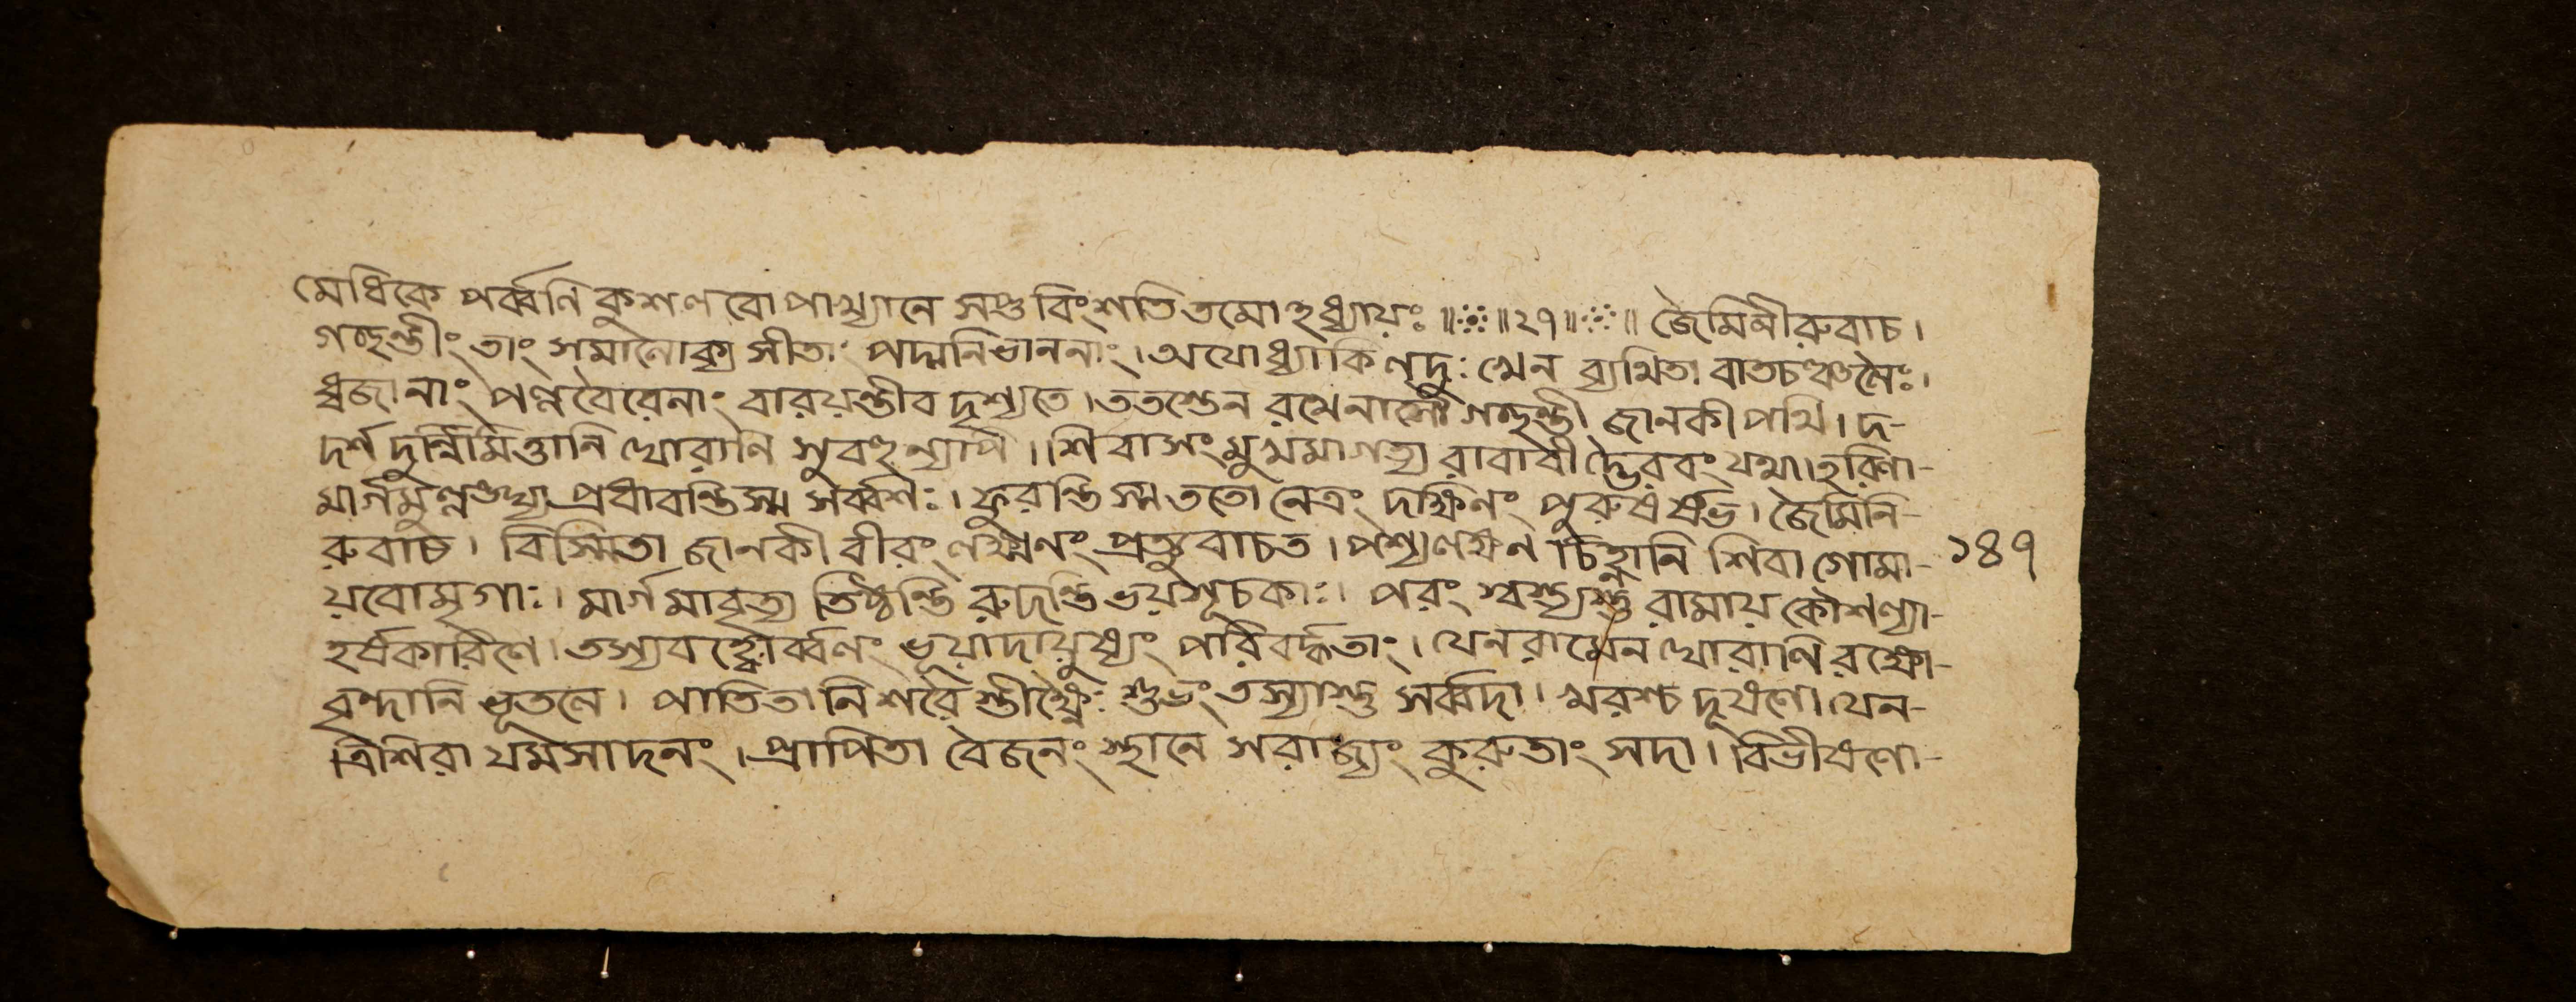 মেধিকে পর্ব্বনি কুশলবোপাখ্যানে সপ্তবিংশতিতমোহধ্যায়ঃ ॥ ॥২৭॥ ॥ জৈমিনীরুবাচ।
গচ্ছন্তীং তাং সমালোক্য সীতাং পদ্মনিভাননাং। অযোধ্যাকিল দুঃখেন ব্যথিতা বাতচঞ্চলৈঃ।
ধ্বজানাং পল্লবৈরেনাং বারয়ন্তীব দৃশ্যতে। ততস্তেন রথেনাসৌ গচ্ছন্তী জানকী পথি। দ-
দর্শ দুর্ন্নিমিত্তানি ঘোরাণি সুবহূন্যপি। শিবা সংমুখমাগত্য রাবাবী দ্ভৈরবং যথা। হরিণা-
মার্গমুল্লঙ্ঘ্য প্রধাবন্তিস্ম সর্ব্বশঃ। ফুরন্তি স্ম ততো নেত্রং দক্ষিনং পুরুষর্ষভ। জৈমিনি-
রুবাচ। বিস্মিতা জানকী বীরং লক্ষ্মনং প্রত্যুবাচত। পশ্য লক্ষ্মন চিহ্নানি শিবা গোমা- ১৪৭
য়বোমৃগাঃ। মার্গমাবৃত্য তিষ্ঠন্তি রুদন্তি ভয়সূচকাঃ। পরং স্বস্ত্যস্তু রামায় কৌশল্যা-
হর্ষকারিণে। তস্যবাহ্বোর্ব্বলং ভূয়াদায়ুষ্যং পরিবর্দ্ধতাং। যেনরামেন ঘোরাণি রক্ষো-
বৃন্দানি ভূতলে। পাতিতা নি শরৈ স্তীক্ষ্ণৈঃ শুভং তস্যাস্তু সর্ব্বদা। খরশ্চ দূষণো যেন-
ত্রিশিরা যমসাদনং। প্রাপিতা বৈজনং স্থানে সরাজ্যং কুরুতাং সদা। বিভীষণো-